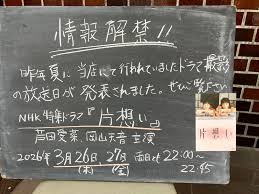 情報解禁!!
昨年夏に当店にて行われていましたドラマ撮影
の放送日が発表されました。ぜひご覧下さい
NHK 特集ドラマ『片想い』
芦田愛菜、岡山天音 主演
2026年3月26日、27日 両日とも22:00〜
(木) (金) 22:45
片想い